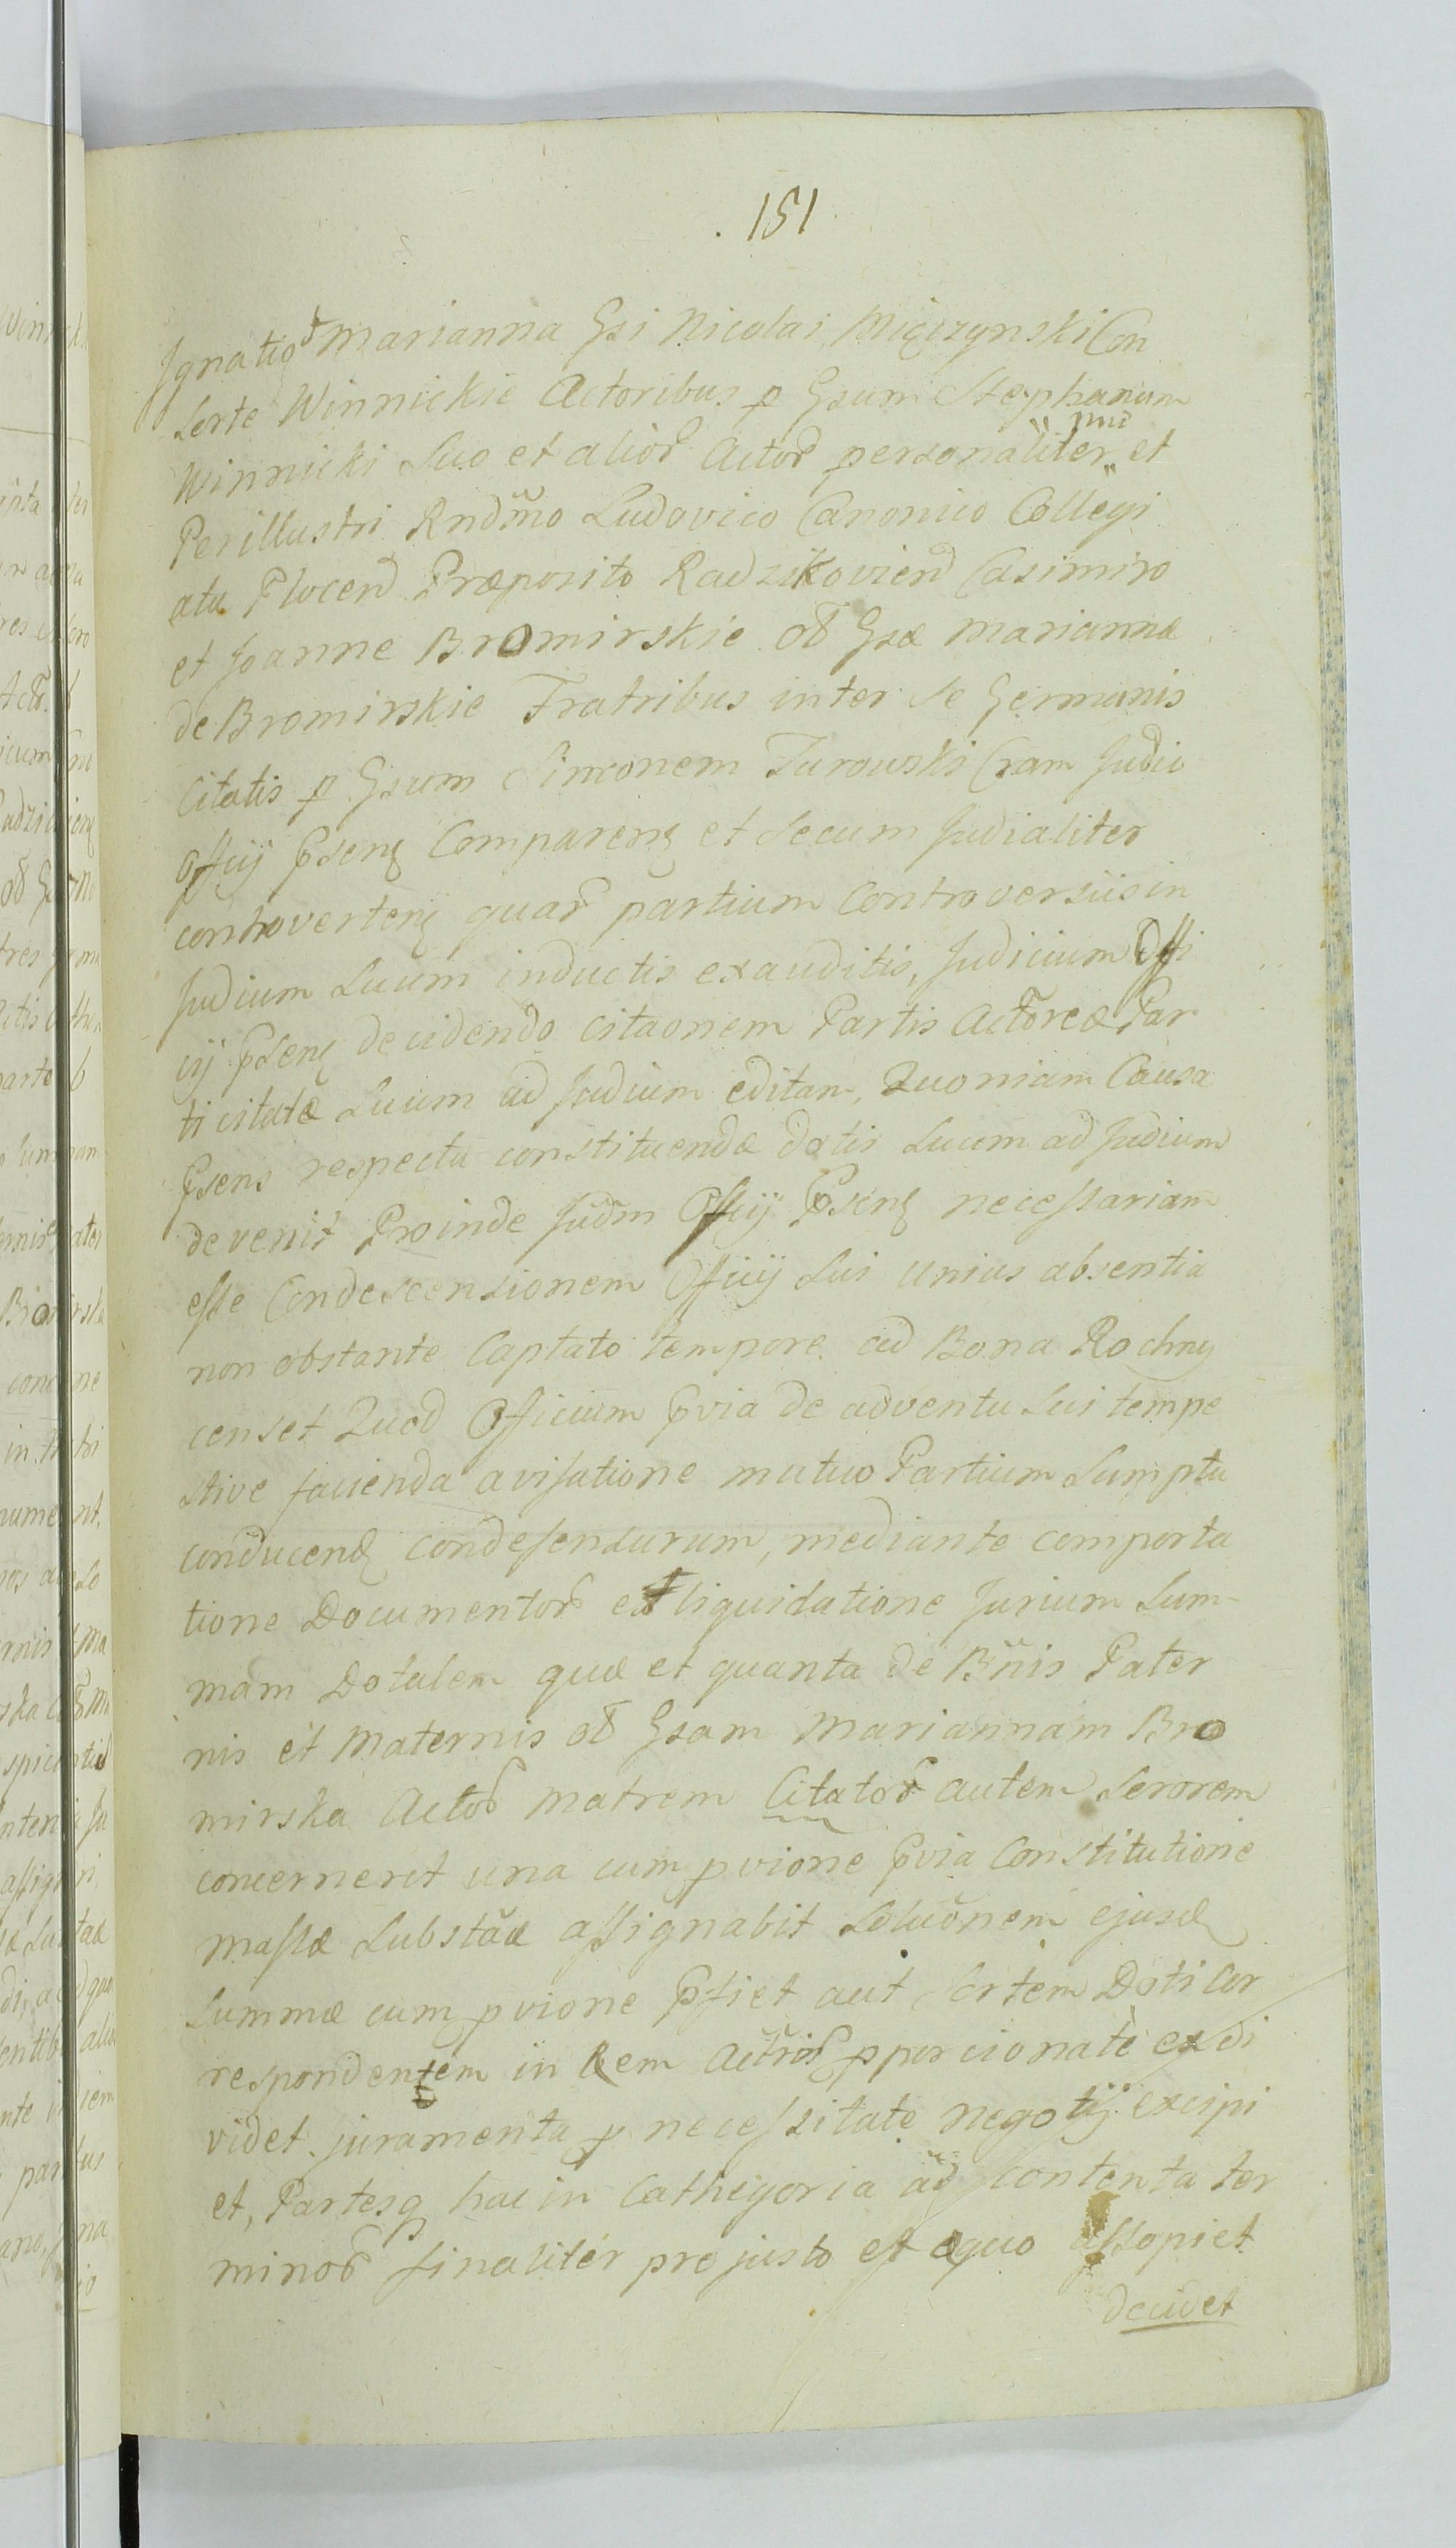 151
Ignatio et Marianna Gsi Nicolai Mięczynski Con
sorte Winnickie Actoribus p Gsum Stephanum
Winnicki suo et alior Actor personaliter nne et
Perillustri Rndmo Ludovico Canonico Collegi
atu Plocen Præposito Radzikovien Casimiro
et Joanne Bromirskie ol Gsæ Mariannæ
de Bromirskie Fratribus inter se Germanis
Citatis p Gsum Simonem Turowski Cram Judio
Officij Psens Comparens et secum Judialiter
controvertens quar partium Controversiis in
Judium suum inductis exauditis, Judicium Offi
cij psens decidendo citaonem Partis Actoreæ Par
ti citatæ suum ad Judium editam, Quoniam Causa
Psens respectu constituendæ dotis suum ad Judium
devenit Proinde Judm Officij Psens necessariam
esse Condescensionem Officij sui unius absentia
non obstante Captato tempore ad Bona Rochny
censet Quod Officium Pvia de adventu sui tempe
stive facienda avisatione mutuo Partium sumptu
conducend condesensurum, mediante comporta
tione Documentor et liquidatione Jurium sum-
mam Dotalem quæ et quanta de Bnis Pater
nis et Maternis ol Gsam Mariannam Bro
mirska Actor Matrem Citator autem sororem
concerneret una cum pvione Pvia Constitutione
Massæ Substaæ assignabit soluonem ejusd
summæ cum pvione Pfiet aut sortem Doti cor
respondentem in Rem Actrior pporcionate exdi
videt juramenta p necessitate negotij excipi
et, Partesq hac in Cathegoria ad contenta ter
minor finaliter pro justo et æquo assopiet
decidet